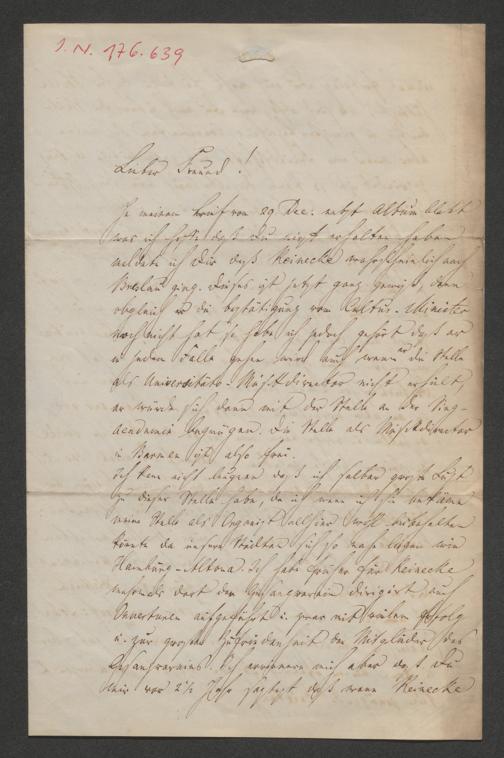 I. N. 176.639
Lieber Freund!
In meinem Brief von 29 Dec. nebst Albumblatt
was ich hoffe daß Du wirst erhalten haben
meldete ich Dir daß Reinecke wahrscheinlich nach
Breslau ging. Dieses ist jetzt ganz gewiß, denn
obgleich er die Bestätigung vom Cultus-Minister
noch nicht hat so habe ich jedoch gehört daß er
in jedem Falle gehen wird auch wenn er die Stelle
als Universitäts-Musikdirector nicht erhält,
er würde sich dann mit der Stelle an der Sing-
academie begnügen. Die Stelle als Musikdirector
in Barmen ist also frei.
Ich kann nicht läugnen daß ich selber große Lust
zu dieser Stelle habe, da ich wenn ich sie bekäme
meine Stelle als Organist allhier wohl beibehalten
könnte da unsere Städte sich so nahe liegen wie
Hamburg-Altona. Ich habe früher für Reinecke
mehrmals dort den Gesangverein dirigirt, auch
Ouverturen aufgeführt u. zwar mit vielem Erfolg
u. zur großen Zufriedenheit der Mitglieder des
Gesangvereins. Ich erinnere mich aber daß Du
mir vor 2½ Jahr sagtest daß wenn Reinecke